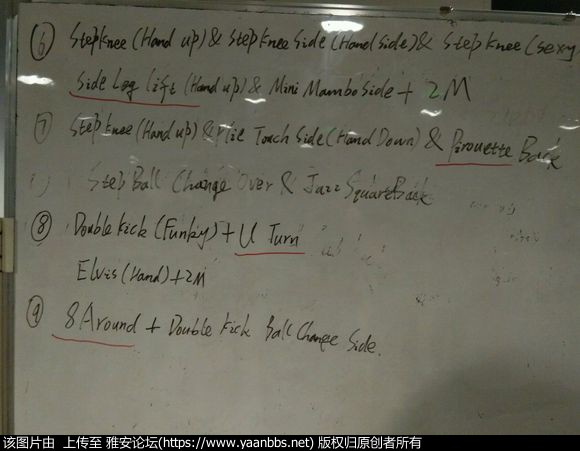 ⑥ Step Knee (Hand up) & Step Knee Side (Hand side) & Step Knee (sexy
Side Leg lift (Hand up) & Mini Mambo Side + 2M
⑦ Step Knee (Hand up) & Plie Touch Side (Hand Down) & Pirouette Back
Step Ball Change Over & Jazz Square Back
⑧ Double Kick (Funky) + U Turn
Elvis (Hand) + 2M
⑨ 8 Around + Double Kick Ball Change Side.
该图片由 上传至 雅安论坛(https://www.yaanbbs.net) 版权归原创者所有